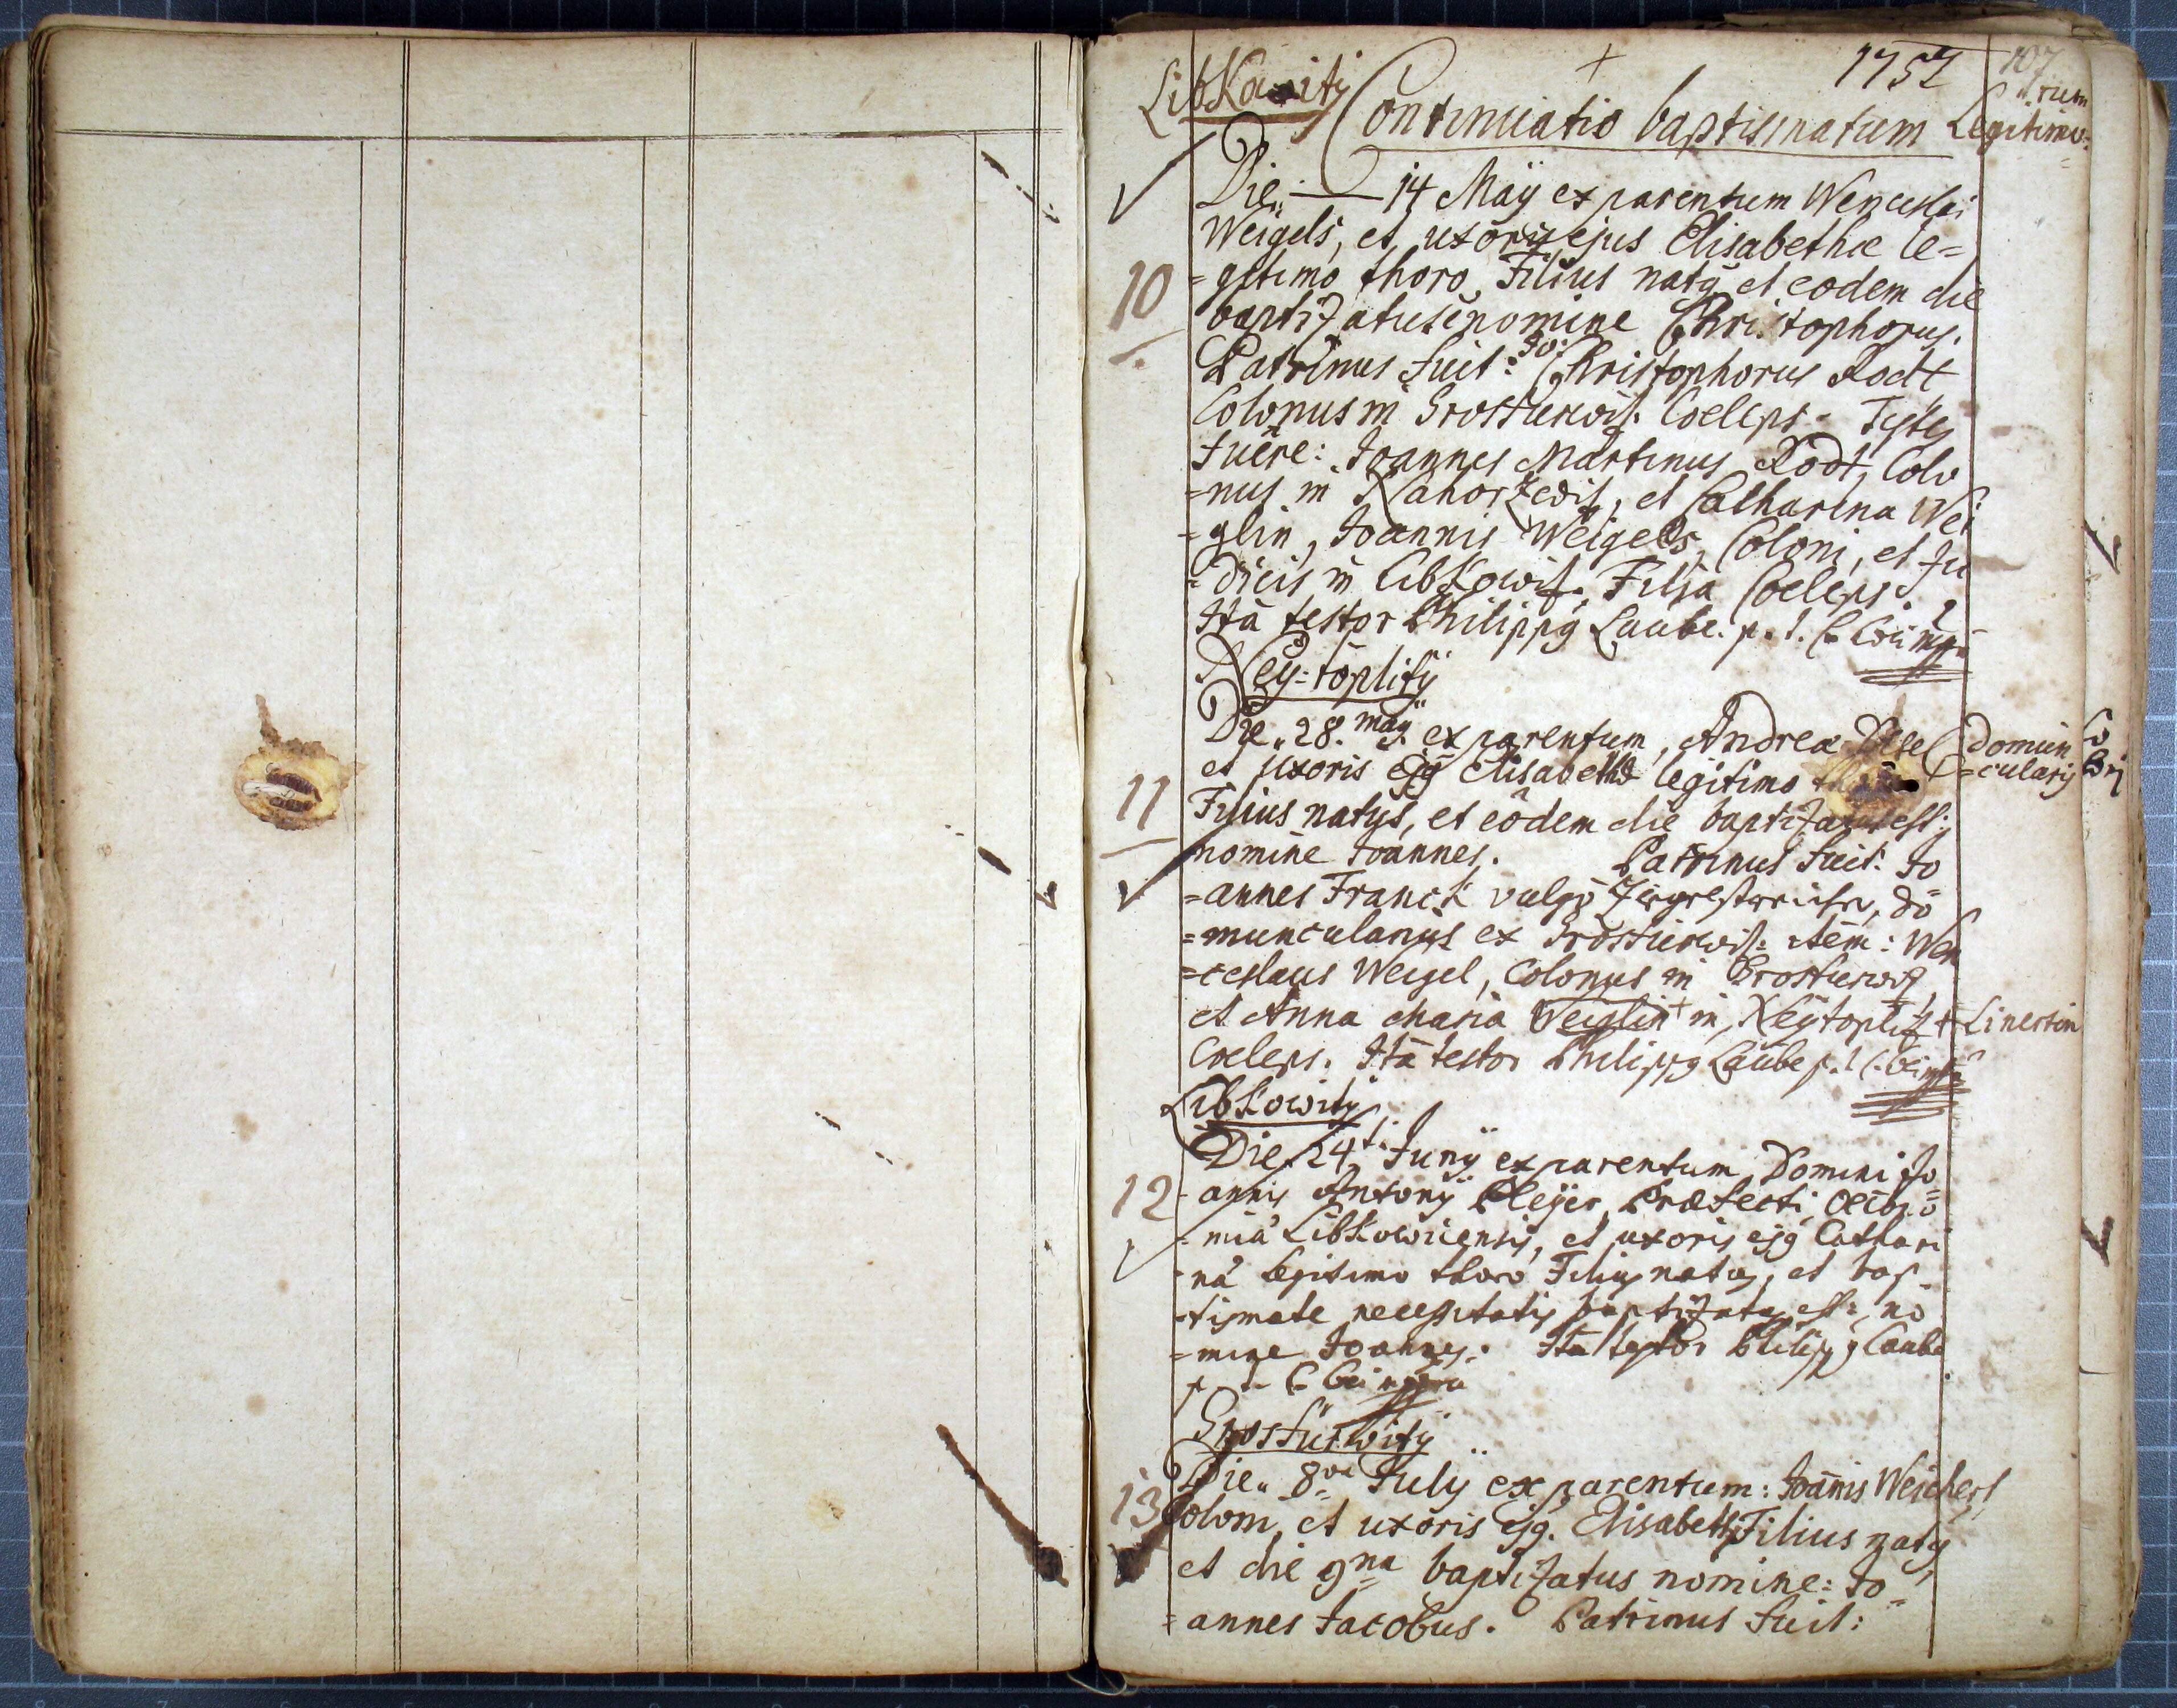 1757 107
Libkowitz Continuatio baptismatum Legitimo-
rum
Die 14 Maÿ ex parentum Wenceslai
Weigels, et uxoris ejus Elisabethæ le=
10 =gitimo thoro Filius natq et eodem die
baptizatus: nomine Christophorus.
Patrinus fuit: Jo: Christophorus Rodt
Colonus in Coeleps. Testes
fuêre: Joannes Martinus Rodt, Colo
=nus in Nahorzedis, et Catharina Wei
=glin, Joannis Weigels, Coloni, et Ju
=dicis in Libkowitz. Filia Coeleps.
Ità testor Philippq Laube. p. t. C.
Neÿ=töplitz
Die 28. maÿ ex parentum, Andreæ domun
et uxoris ejq Elisabethæ legitimo =cularis
11 Filius natus, et eôdem die baptizatus est:
nomine Joannes. Patrinus fuit: Jo
=annes Franck vulgò do
=muncularius ex item: Wen
=ceslaus Weigel, Colonus in
et Anna Maria Weiglin + in Neÿtöplitz + Linertin
Coeleps. Ità testor Philippq Laube p. t. C.
Libkowitz
Die 24t. Junÿ ex parentum, Domini Jo
12 =annis Antonÿ Pleÿer, Præfecti Oeco=
=mia Libkowicensis, et uxoris ejq Cathari
=nà legitimo thoro Filius natq, et bap
=tismate necessitatis baptizatq est: no
=mine Joannes. Ità testor Philippq Laube
p. t. C.
Die 8va Julÿ ex parentum: Joannis Weichert
13 Coloni, et uxoris ejq. Elisabeth Filius natq
et die 9na baptizatus nomine: Jo
=annes Jacobus. Patrinus fuit: